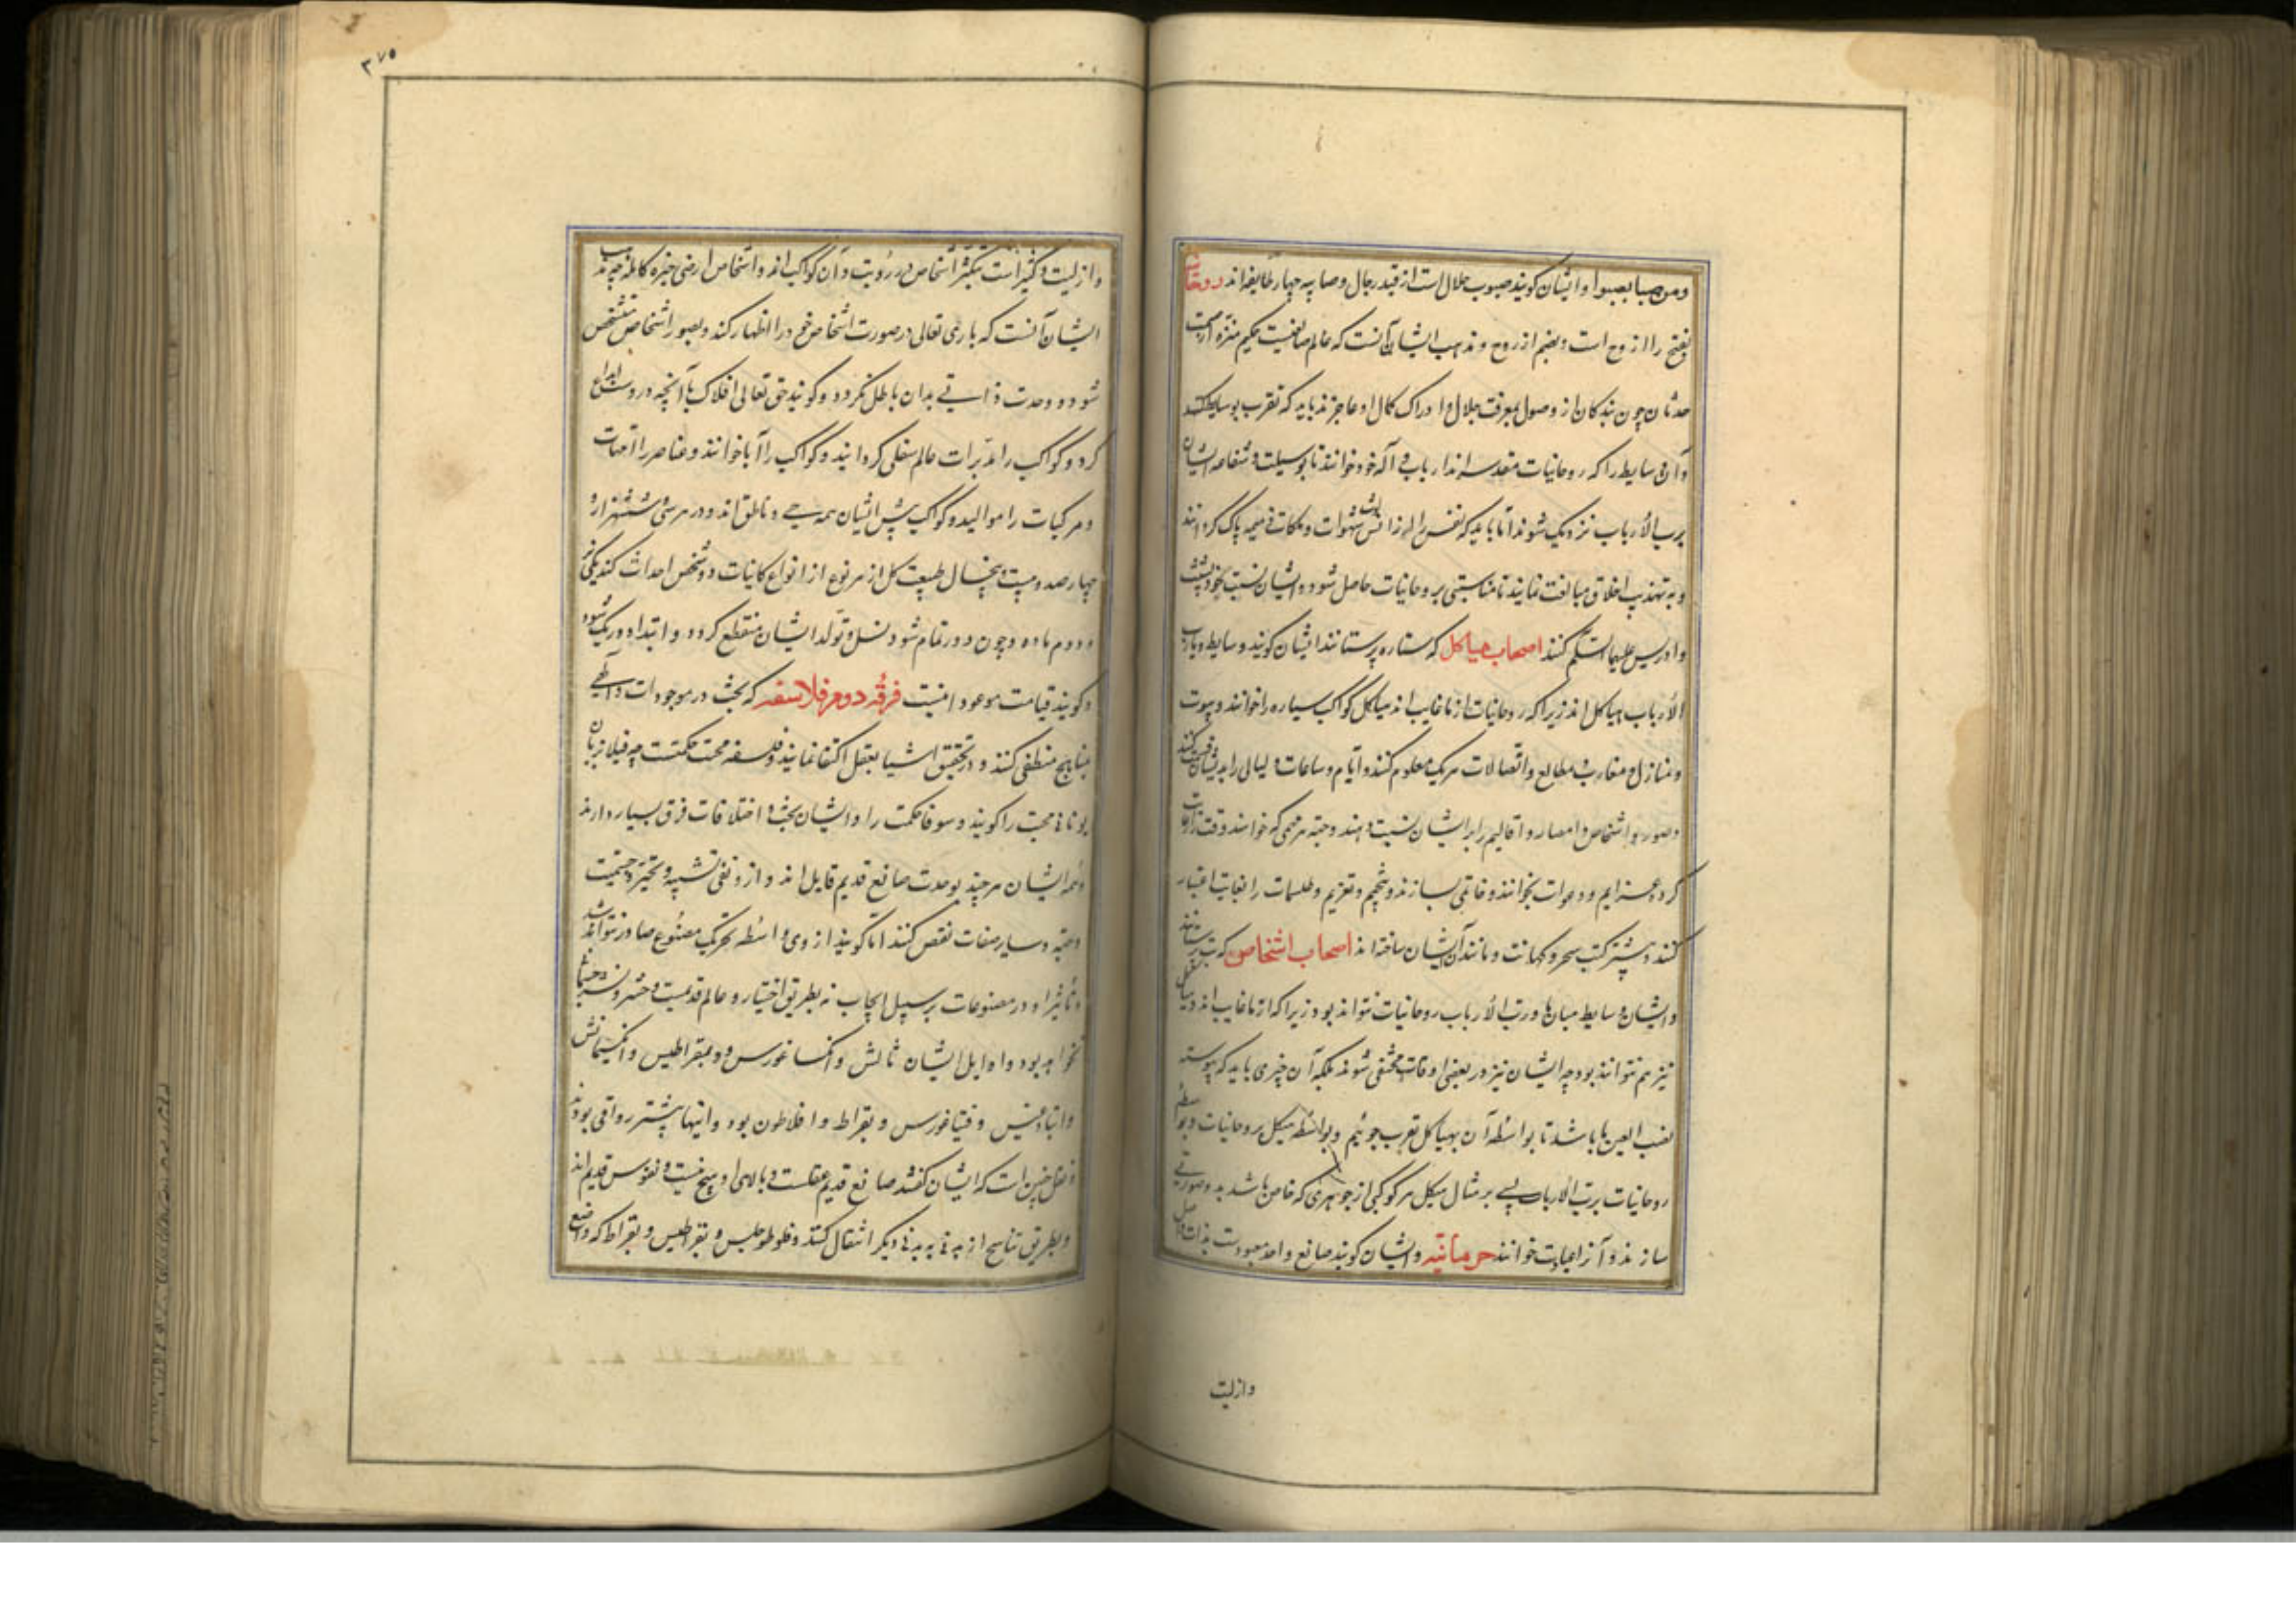 ومن صبا یصبوا و ایشان کویند صبوب حلال است از قید رجال و صابیه چهار طایفه اند روحانیات
بفتح را از روح است و بضم از روح و مذهب ایشان آنست که عالم صانعیست حکیم منزه از سمت
حدثان چون بندکان از وصول بمعرفت جلال و ادراک کمال او عاجزند باید که تقرب بوسایط کنند
و آن وسایط را که روحانیات مقدسه اند ارباب و آلهه خود خوانند تا بوسیلت و شفاعه ایشان
برب الارباب نزدیک شوند اما باید که نفس را از شهوات و ملکات ذمیمه پاک کردانند
و به تهذیب اخلاق مبالغت نمایند تا مناسبتی بروحانیات حاصل شود و ایشان نسبت خود بشیث
و ادریس علیهما السلم کنند اصحاب هیاکل که ستاره پرستانند ایشان کویند وسایط و یارب
الارباب هیاکل اند زیرا که روحانیات از ما غایب اند هیاکل کواکب سیاره را خوانند و بیوت
و منازل و مغارب و مطالع و اتصالات هریک معلوم کنند و ایام و ساعات و لیالی را بدیشان قسمت کنند
و صور و اشخاص و امصار و اقالیم را بر ایشان نسبت دهند و جهة هر مهمی که خواهند وقت را
کرده عزایم و دعوات بخوانند و خاتمی بسازند و تنجیم و تعزیم و طلسمات را بغایت اعتبار
کنند و بیشتر کتب سحر و کهانت و مانند آن ایشان ساخته اند اصحاب اشخاص که بت پرستانند
و ایشان وسایط میان ما و رب الارباب روحانیات نتواند بود زیرا که از ما غایب اند و هیاکل
نیز هم نتوانند بود چه ایشان نیز در بعضی اوقات مختفی شوند بلکه آن چیزی باید که پیوسته
نصب العین ما باشد تا بواسطه آن بهیاکل تقرب جوئیم و بواسطه هیکل بروحانیات و بواسطه
روحانیات برب الارباب پس بر مثال هیکل هر کوکبی از جوهری که خاص باشد بدو صورتی
سازند و آنرا عبادت خوانند حرمانیه و ایشان کویند صانع واحد معبودست بذات و اصل
وازلیت
٣٧٥
و ازلیت و کثیر است بتکثر اشخاص در رؤیت و آن کواکب اند و اشخاص ارضی خیره کامله چه مذهب
ایشان آنست که باری تعالی در صورت اشخاص خود را اظهار کند و بصور اشخاص متشخص
شود و وحدت ذاتی بدان باطل نکردد و کویند حق تعالی افلاک با آنچه دروست ابداع
کرد و کواکب را مدبرات عالم سفلی کردانید و کواکب را آبا خوانند و عناصر را امهات
و مرکبات را موالید و کواکب پیش ایشان همه حی و ناطق اند و در هر سی و شش هزار و
چهار صد و بیست و پنج سال طبیعت کل از هر نوع از انواع کاینات دو شخص احداث کند یکی نر
و دوم ماده و چون دور تمام شود نسل و تولد ایشان منقطع کردد و ابتداء دور یک شود
و کویند قیامت موعود اینست فرقه دوم فلاسفه که بحث در موجودات
مناهج منطقی کنند و در تحقیق اشیا بعقل اکتفا نمایند و فلسفه محبت حکمتست چه فیلا بزبان
یونانی محبت را کویند و سوفا حکمت را و ایشان بحث و اختلافات فرق بسیار دارند
و همه ایشان هرچند بوحدت صانع قدیم قایل اند و ازو نفی تشبیه و تحیز و جسمیت
و جهة و سایر صفات نقص کنند اما کویند از وی واسطه تحریک مصنوع صادر نتواند شد
و تأثیر او در مصنوعات بر سبیل ایجاب نه بطریق اختیار و عالم قدیمست و حشر و نشر جسمانی
نخواهد بود و اوایل ایشان ثالس و انکساغورس و دیمقراطیس و انکسیمانس
و انبادقلس و فیثاغورس و بقراط و افلاطون بود و اینها پیشتر رواقی بودند
و نقل چنین است که ایشان کفتند صانع قدیم عقلست و بالای او هیچ نیست و نفوس قدیم اند
و بطریق تناسخ از بدنی به بدنی دیکر انتقال کنند و فلوطوخلیس و بقراطیس و بقراط که واضع